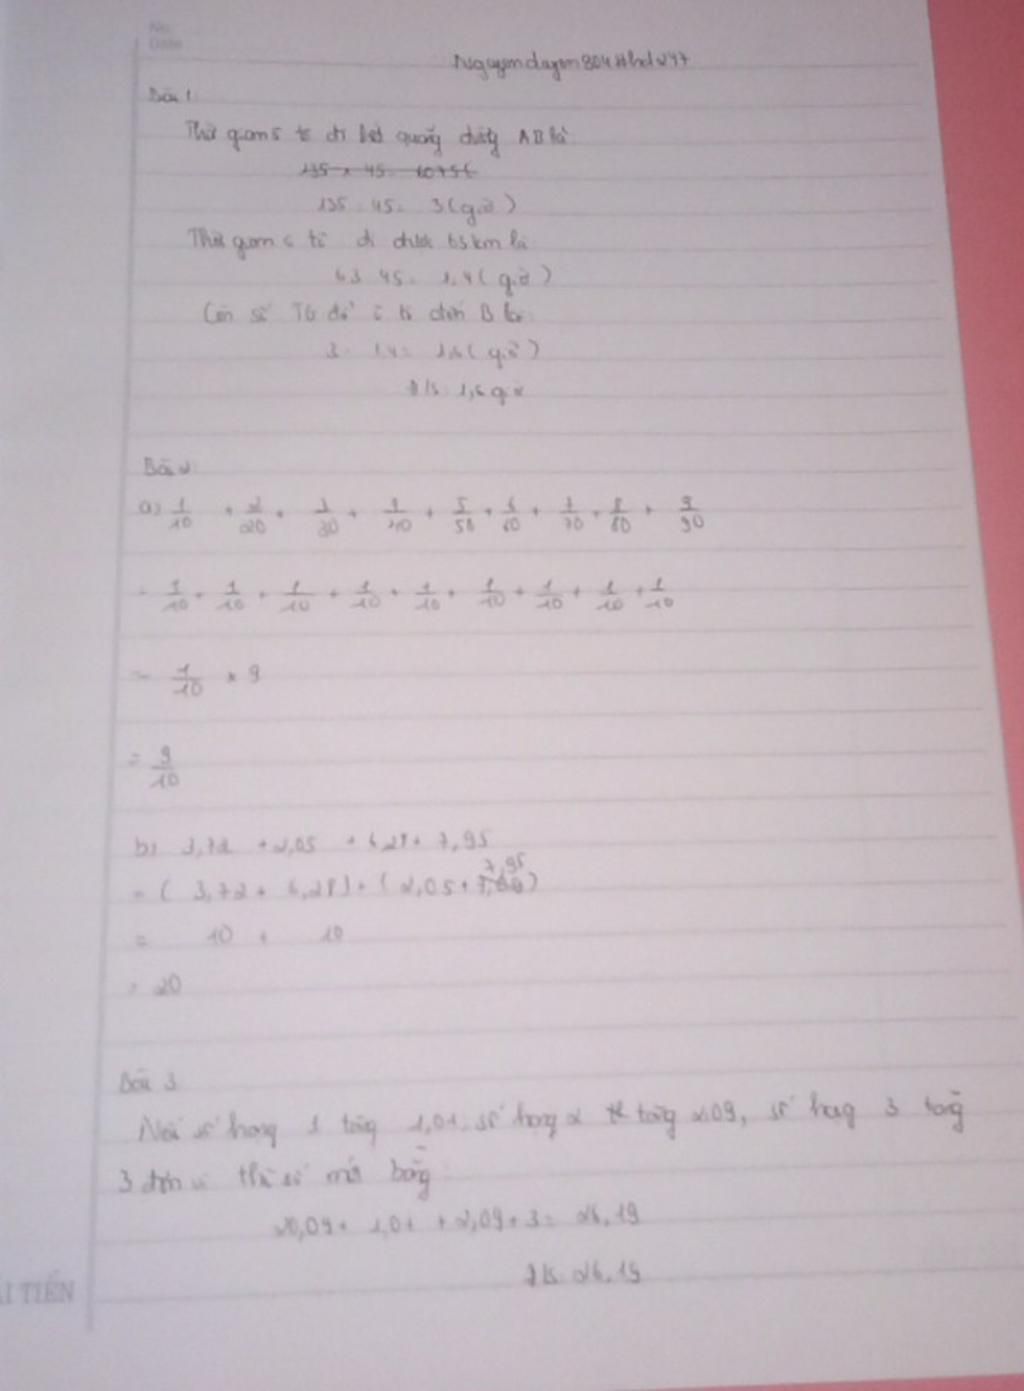 No.
Date
Nguyenduyen804#hdv247
Bài 1
Thời gian ô tô đi hết quãng đường AB là
135 : 45 = 3 (giờ)
Thời gian ô tô đi được 63 km là
63 : 45 = 1,4 (giờ)
Còn số TG để ô tô đến B là:
3 - 1,4 = 1,6 (giờ)
Đ/s: 1,6 giờ
Bài 2
a) 1/10 + 2/20 + 3/30 + 4/40 + 5/50 + 6/60 + 7/70 + 8/80 + 9/90
= 1/10 + 1/10 + 1/10 + 1/10 + 1/10 + 1/10 + 1/10 + 1/10 + 1/10
= 1/10 × 9
= 9/10
b) 3,72 + 2,05 + 6,28 + 7,95
= ( 3,72 + 6,28) + ( 2,05 + 7,95)
= 10 + 10
= 20
Bài 3
Nếu số hạng 1 tăng 1,01, số hạng 2 tăng 2,09, số hạng 3 tăng
3 đơn vị thì số mới bằng
20,09 + 1,01 + 2,09 + 3 = 26,19
Đ/s: 26,19
ẢI TIẾN